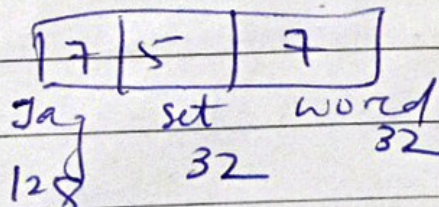 7 5 7
Tag set word
128 32 32